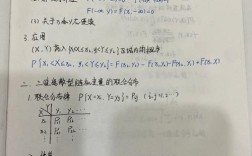 F(-∞, y) = F(x, -∞) = 0
(3) 关于 x 和 y 右连续
3. 应用
(X, Y) 落入 {x₁<X≤x₂, y₁<Y≤y₂} 区域内的概率
P{x₁<X≤x₂, y₁<Y≤y₂} = F(x₂, y₂) - F(x₂, y₁) - F(x₁, y₂) + F(x₁, y₁)
二. 二维离散型随机变量的联合分布
1. 联合分布律 P{X=xᵢ, Y=yⱼ} = Pᵢⱼ (i, j = 1, 2, …)
X Y y₁ y₂ …
x₁ P₁₁ P₁₂
x₂ P₂₁ P₂₂